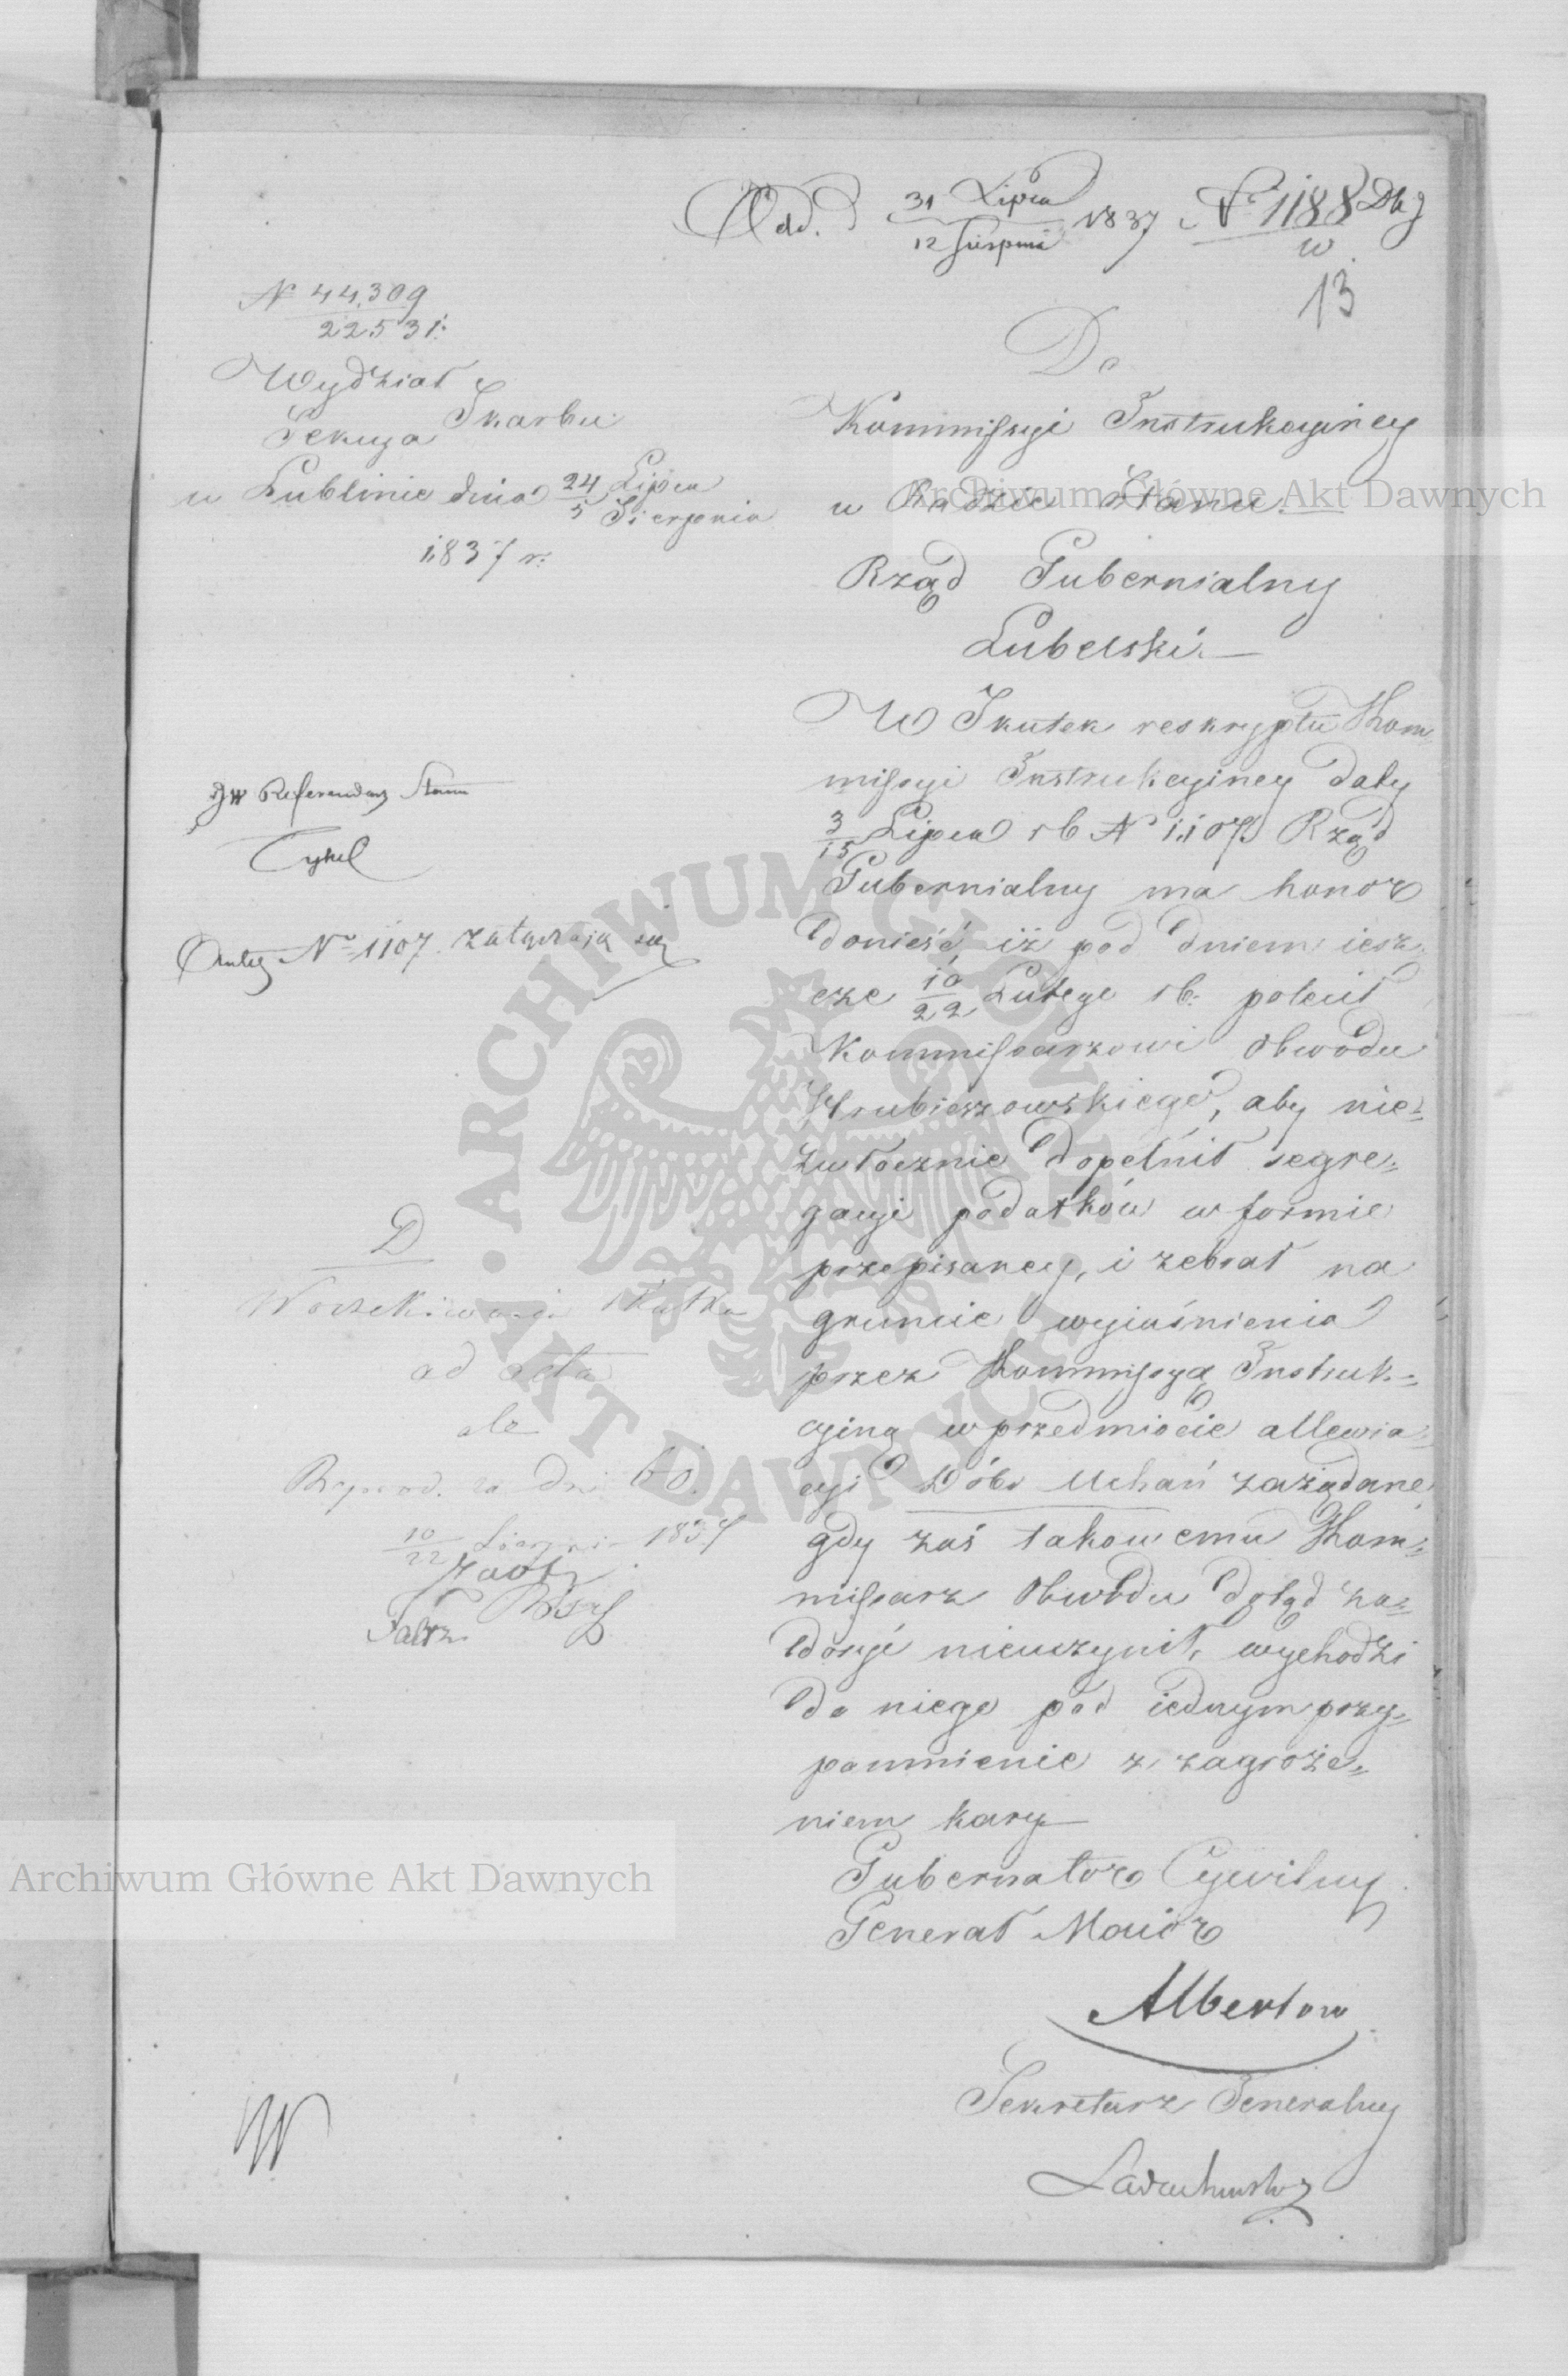 Odd. d 31 Lipca / 12 Sierpnia 1837 N 1188 Dkg
w
13
N 44,309
22531
Wydział
Skarbu
Sekcya
w Lublinie dnia 24 Lipca / 5 Sierpnia
1837 r.
Do
Kommissyi Instrukcyiney
w Radzie Stanu.
Rząd Gubernialny
Lubelski.
W Skutek reskryptu Kom=
missyi Instrukcyiney daty
3/15 Lipca rb N 1,107. Rząd
Gubernialny ma honor
donieść, iż pod dniem iesz
cze 10/22 Lutego rb: polecił
Kommissarzowi Obwodu
Hrubieszowskiego, aby nie=
zwłocznie dopełnił segre=
gacyi podatków w formie
przepisaney, i zebrał na
gruncie wyiaśnienia
przez Kommissyą Instruk=
cyiną w przedmiocie allewia
cyi Dóbr Uchań zażądane
gdy zaś takowemu Kom=
missarz Obwodu dotąd za=
dosyć nieuczynił, wychodzi
do niego pod iednym przy=
pomnienie z zagroże=
niem kary
Gubernator Cywilny
Generał Maior
Albertow
Sekretarz Generalny
JW Referendarz Stanu
Cykel
N 1107. załączają się
D
W oczekiwaniu skutku
ad acta
ale
Reprod. za dni 60.
10/22 Sierpnia 1837
Archiwum Główne Akt Dawnych
Archiwum Główne Akt Dawnych
ARCHIWUM GŁÓWNE AKT DAWNYCH